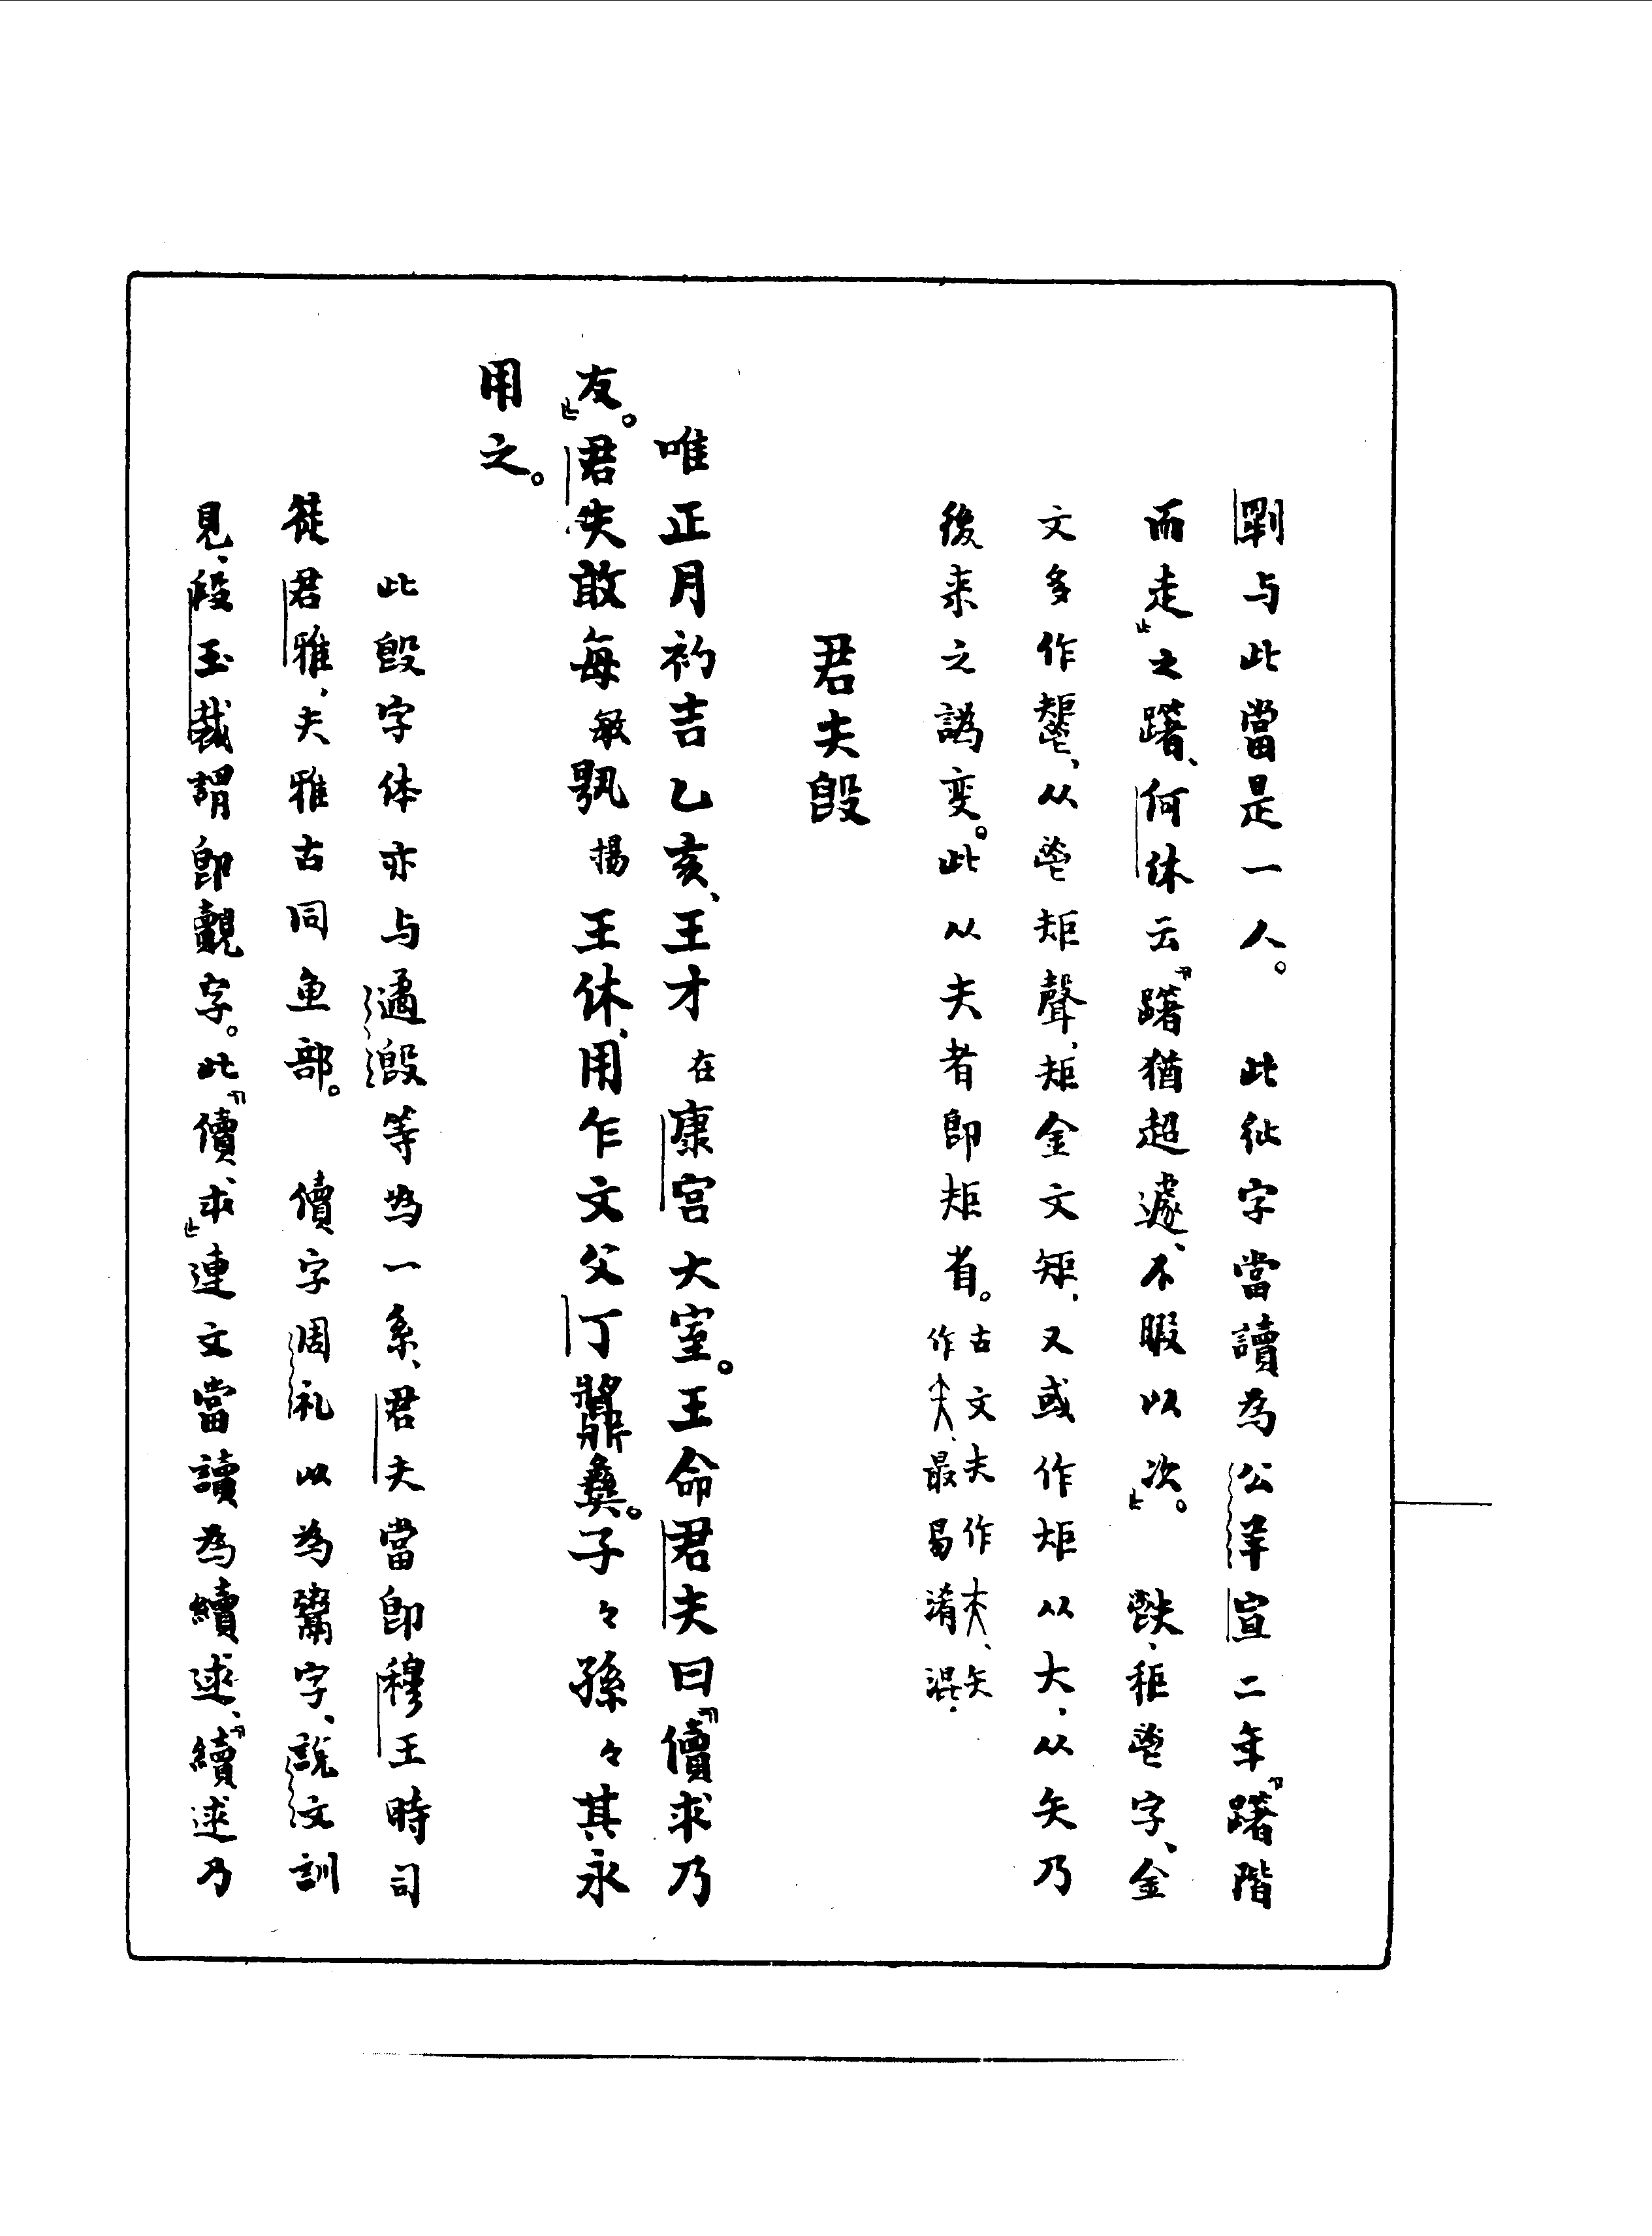 與此當是一人。　此徣字當讀為公羊宣二年「躇階
而走」之躇、何休云「躇猶超遽、不暇以次」。　字、金
文多作、从鬯矩聲、矩金文矩、又或作矩从大、从矢乃
後来之譌変。此从夫者即矩省。古文夫作夫、矢作、最易淆混.
君夫𣪘
唯正月初吉乙亥、王才在康宫大室。王命君夫曰「儥求乃
友。」君夫敢每敏揚王休、用乍文父丁𩱧彝。子々孫々其永
用之。
此𣪘字体亦与遹𣪘等為一系、君夫當即穆王時司
徒君雅、夫雅古同魚部。　儥字周礼以為鬻字、説文訓
見、段玉裁謂即覿字。此「儥求」連文當讀為續逑、「續逑乃